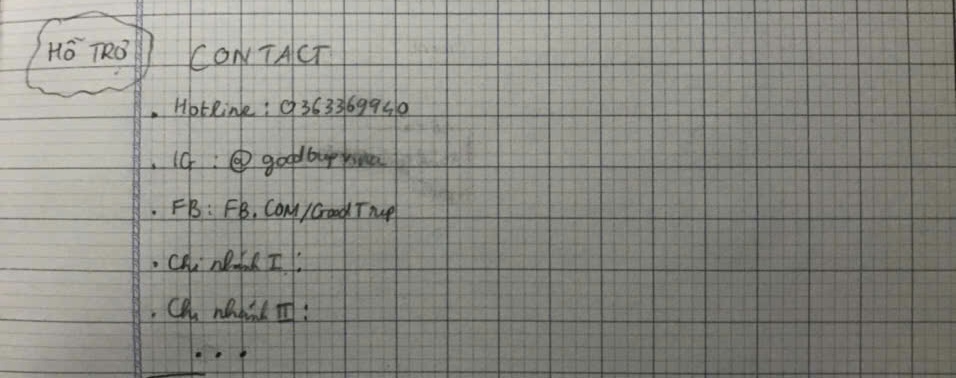 HỖ TRỢ
CONTACT
. Hotline : 0363369940
. IG : @
. FB : FB.COM/GoodTrip
. Chi nhánh I :
. Chi nhánh II :
...